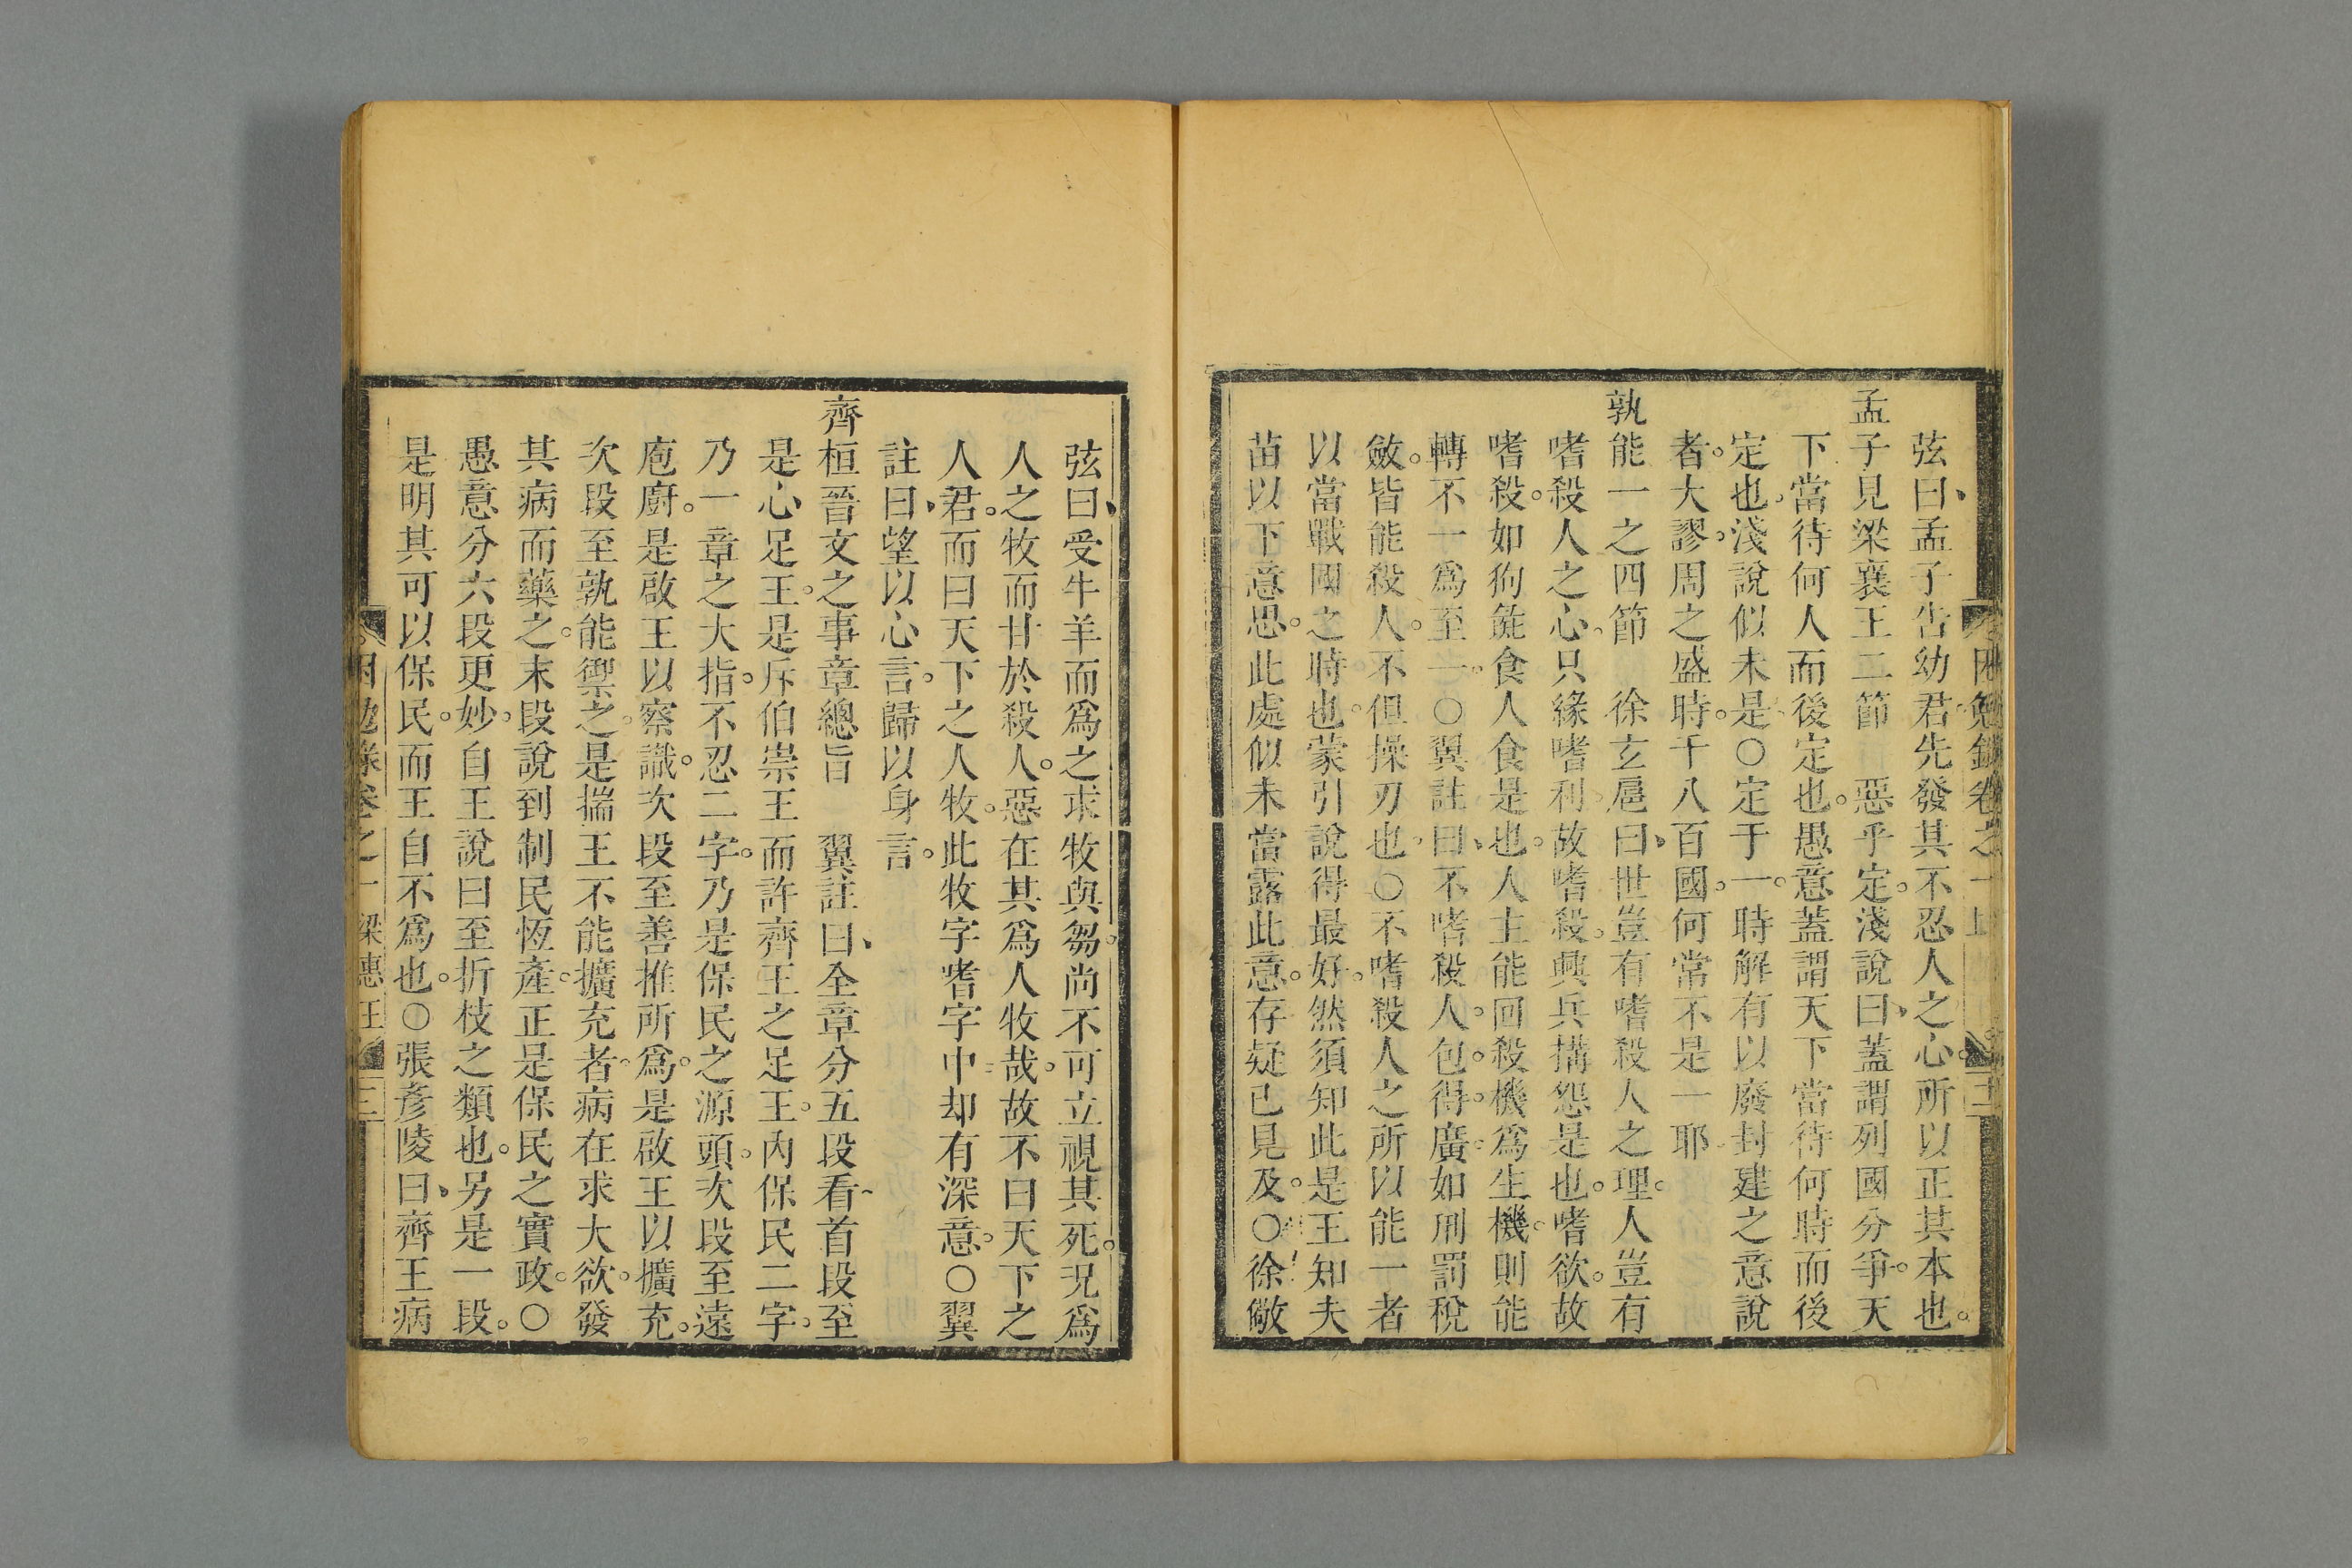 弦曰、孟子告幼君先發其不忍人之心。所以正其本也。
孟子見梁襄王二節　惡乎定。淺說曰、蓋謂列國分爭。天
下當待何人而後定也。愚意蓋謂天下當待何時而後
定也。淺說似未是○定于一。時解有以廢封建之意說
者。大謬。周之盛時。千八百國。何常不是一耶
孰能一之四節　徐玄扈曰、世豈有嗜殺人之理。人豈有
嗜殺人之心。只緣嗜利故嗜殺。興兵搆怨是也。嗜欲。故
嗜殺。如狗彘食人食是也。人主能回殺機爲生機。則能
轉不一爲至一。○翼註曰、不嗜殺人。包得廣。如刑罰稅
斂。皆能殺人。不但操刃也。○不嗜殺人之所以能一者
以當戰國之時也。蒙引說得最好。然須知此是王知夫
苗以下意思。此處似未當露此意。存疑已見及。○徐儆
弦曰、受牛羊而爲之求牧與芻。尚不可立視其死。況爲
人之牧而甘於殺人。惡在其爲人牧哉。故不曰天下之
人君。而曰天下之人牧。此牧字嗜字中却有深意。○翼
註曰、望以心言。歸以身言。
齊桓晉文之事章總旨　翼註曰、全章分五段看、首段至
是心足王。是斥伯崇王而許齊王之足王。內保民二字。
乃一章之大指。不忍二字。乃是保民之源頭。次段至遠
庖廚。是啟王以察識。次段至善推所爲。是啟王以擴充。
次段至孰能禦之。是揣王不能擴充者。病在求大欲。發
其病而藥之。末段說到制民恆產。正是保民之實政。○
愚意分六段更妙。自王說曰至折枝之類也。另是一段。
是明其可以保民。而王自不爲也。○張彥陵曰、齊王病
困勉錄卷之一 梁惠王 三